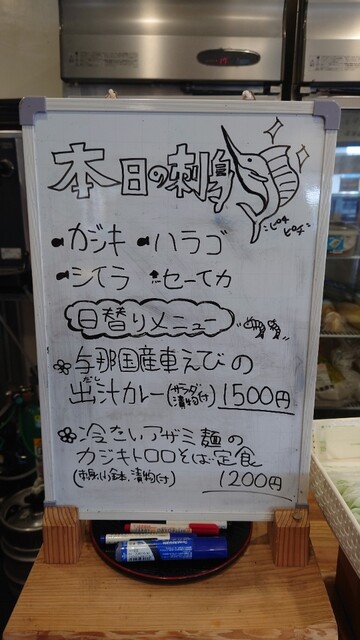 本日の刺身
ピチ
ピチ
カジキ ハラゴ
シイラ セーイカ
日替りメニュー
与那国産車えびの
だし
出汁カレー(サラダ、漬物付) 1500円
冷たいアザミ麺の
カジキトロロそば定食
漬物付)
1200円